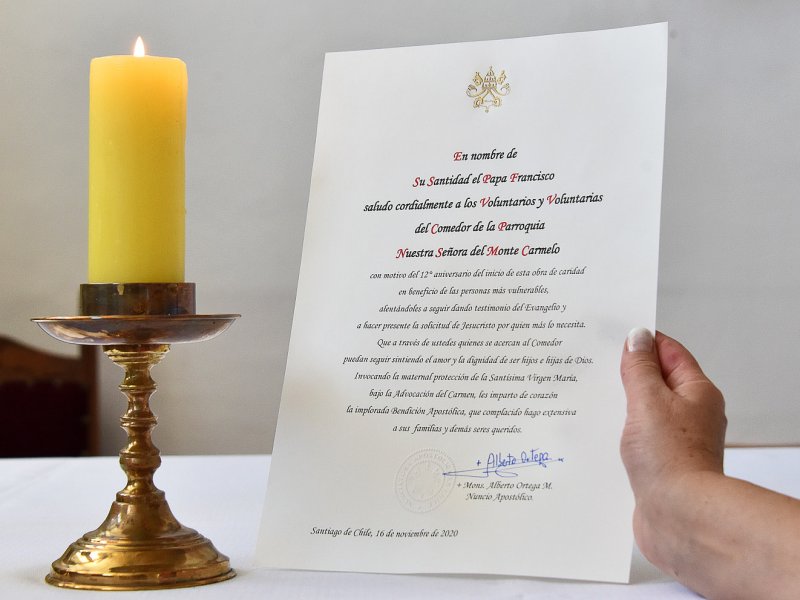 En nombre de
Su Santidad el Papa Francisco
saludo cordialmente a los Voluntarios y Voluntarias
del Comedor de la Parroquia
Nuestra Señora del Monte Carmelo
con motivo del 12° aniversario del inicio de esta obra de caridad
en beneficio de las personas más vulnerables,
alentándoles a seguir dando testimonio del Evangelio y
a hacer presente la solicitud de Jesucristo por quien más lo necesita.
Que a través de ustedes quienes se acercan al Comedor
puedan seguir sintiendo el amor y la dignidad de ser hijos e hijas de Dios.
Invocando la maternal protección de la Santísima Virgen María,
bajo la Advocación del Carmen, les imparto de corazón
la implorada Bendición Apostólica, que complacido hago extensiva
a sus familias y demás seres queridos.
+ Alberto Ortega
+ Mons. Alberto Ortega M.
Nuncio Apostólico.
Santiago de Chile, 16 de noviembre de 2020